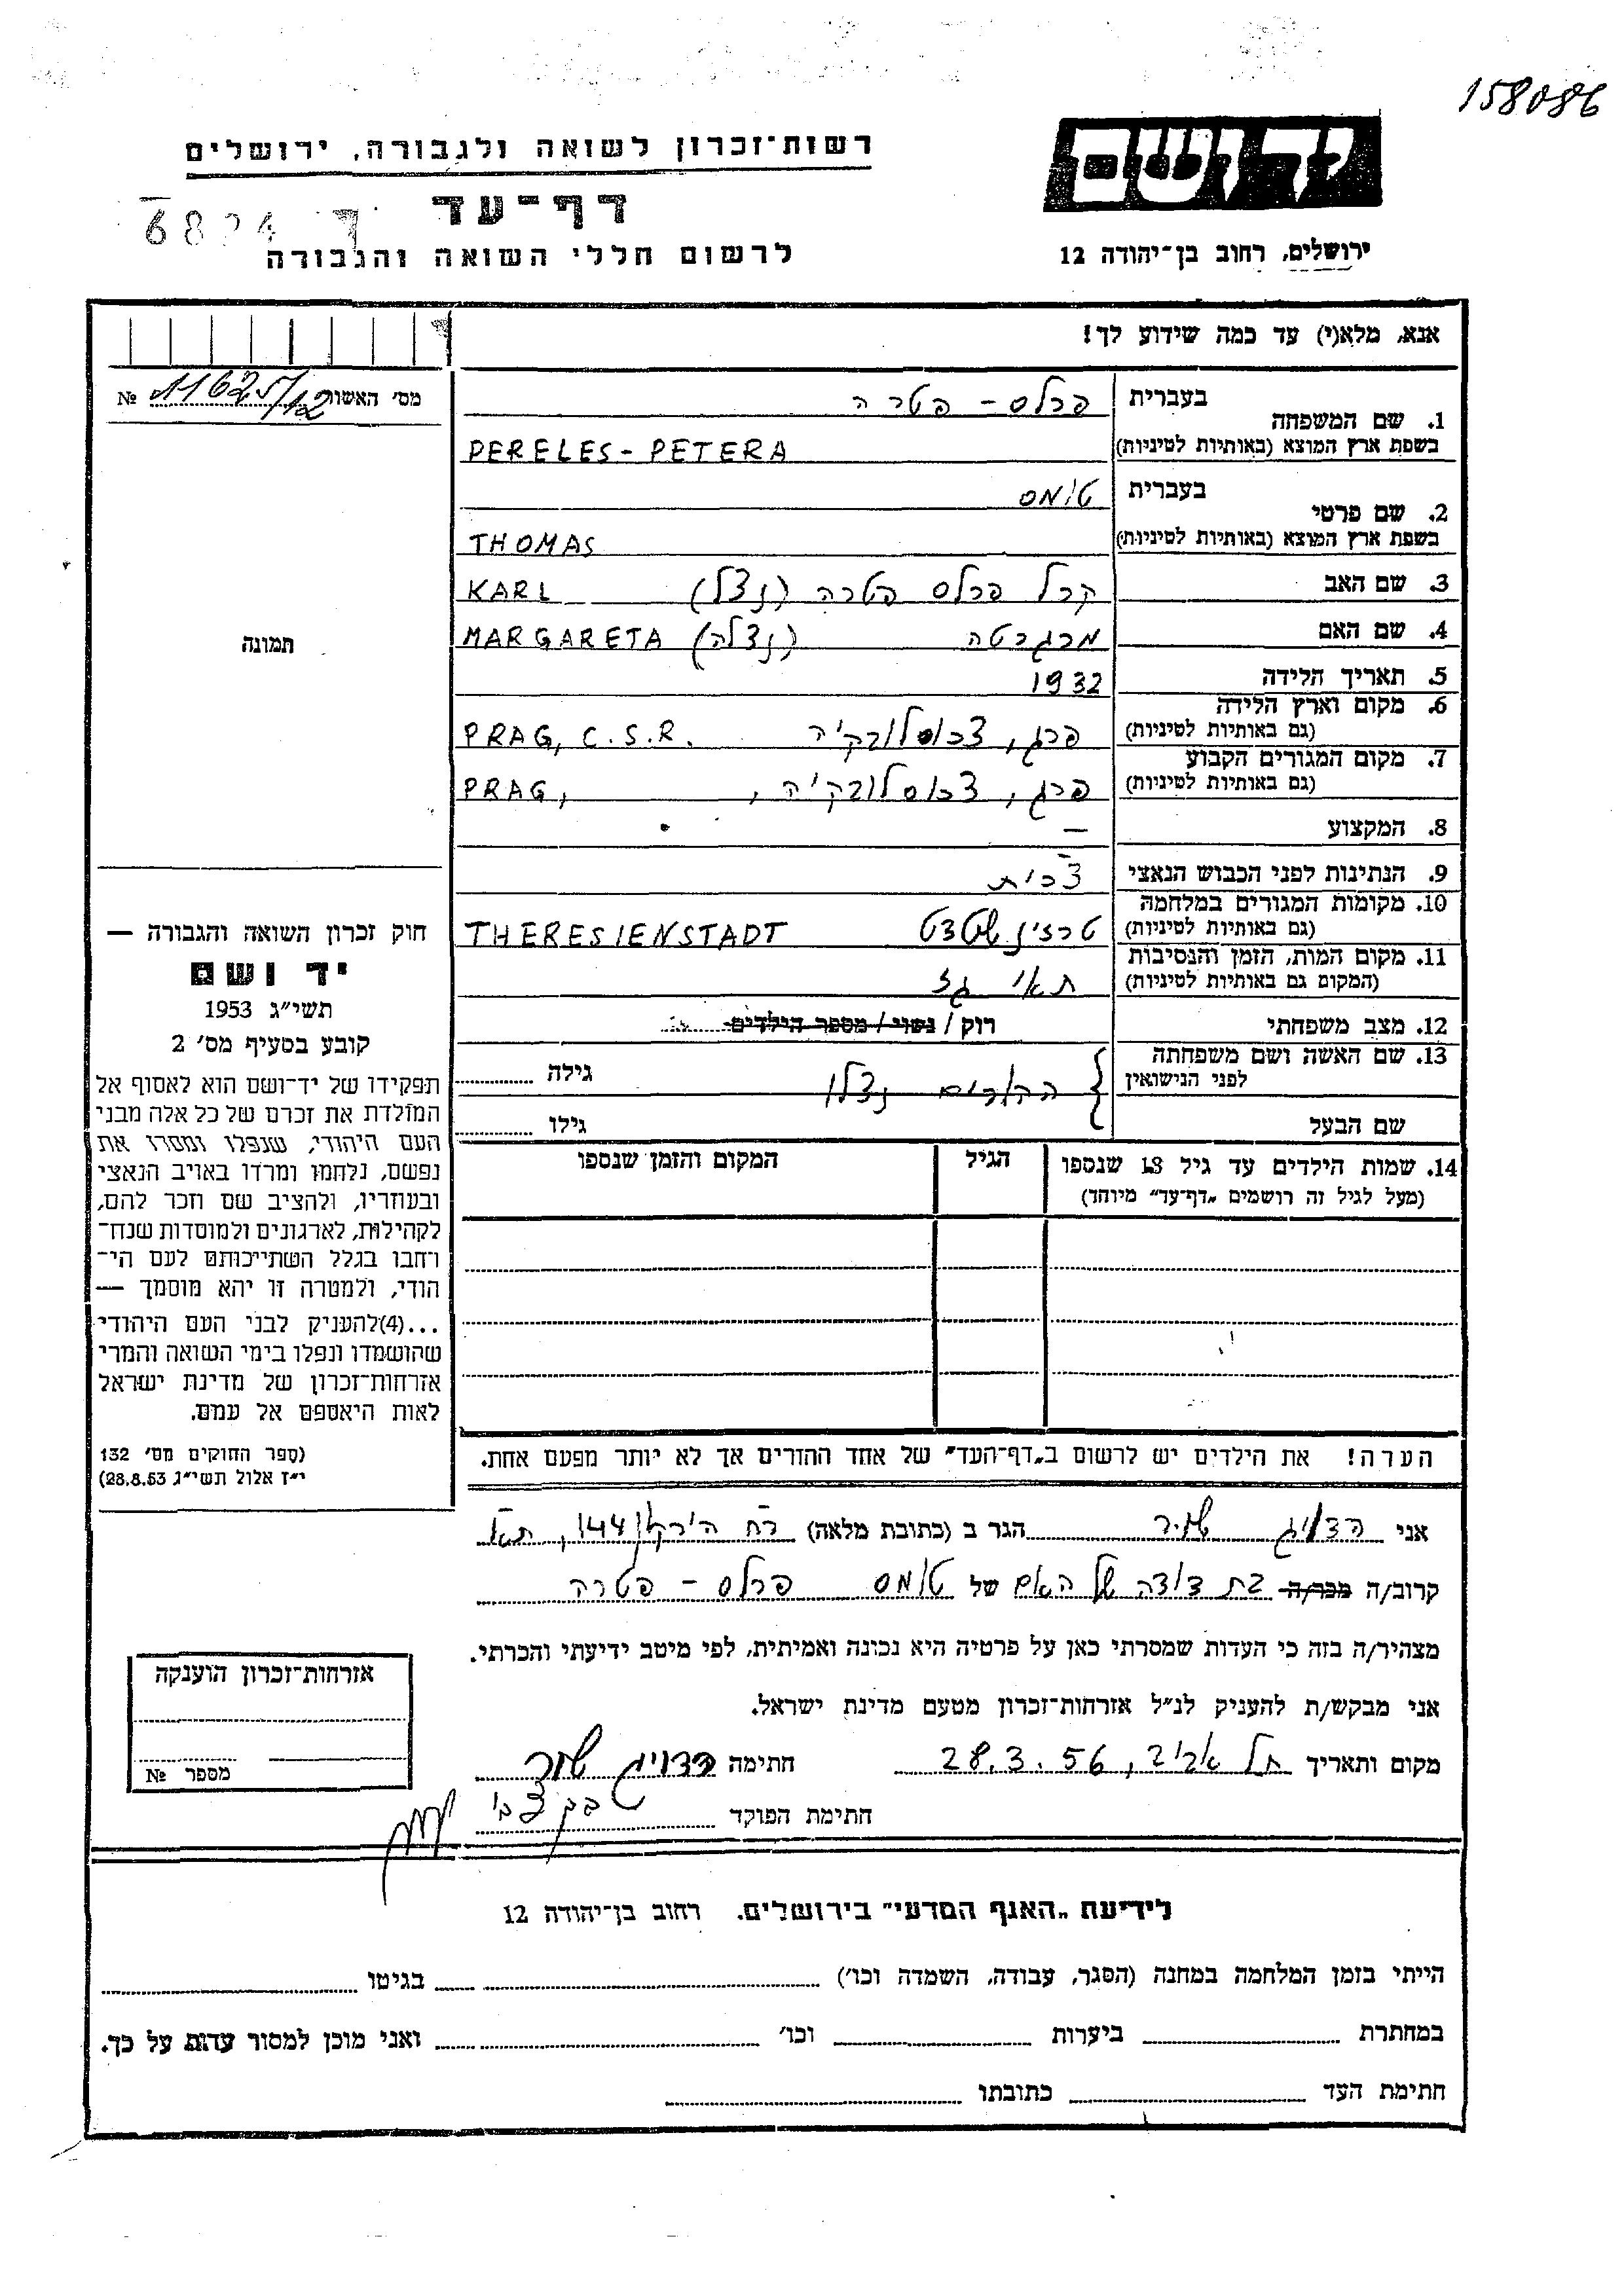 158086
יד ושם
ירושלים, רחוב בן־יהודה 12
רשות־זכרון לשואה ולגבורה, ירושלים
דף־עד
לרשום חללי השואה והגבורה
אנא, מלא(י) עד כמה שידוע לך!
מס׳ האשור № 11625/12
תמונה
1. שם המשפחה
בעברית פרלס - פטרה
בשפת ארץ המוצא (באותיות לטיניות) PERELES - PETERA
2. שם פרטי
בעברית טומס
בשפת ארץ המוצא (באותיות לטיניות) THOMAS
3. שם האב קרל פרלס פטרה (ניצל) KARL
4. שם האם מרגרטה (ניצלה) MARGARETA
5. תאריך הלידה 1932
6. מקום וארץ הלידה
(גם באותיות לטיניות) פרג, צכוסלובקיה PRAG, C.S.R.
7. מקום המגורים הקבוע
(גם באותיות לטיניות) פרג, צכוסלובקיה, PRAG,
8. המקצוע —
9. הנתינות לפני הכבוש הנאצי צ׳כית
10. מקומות המגורים במלחמה
(גם באותיות לטיניות) טרזינשטט THERESIENSTADT
11. מקום המות, הזמן והנסיבות
(המקום גם באותיות לטיניות) תאי גז
12. מצב משפחתי רוק / נשוי / מספר הילדים
13. שם האשה ושם משפחתה
לפני הנישואין
גילה
ההורים ניצלו
שם הבעל גילו
14. שמות הילדים עד גיל 18 שנספו
(מעל לגיל זה רושמים „דף־עד״ מיוחד)
הגיל
המקום והזמן שנספו
הערה! את הילדים יש לרשום ב„דף־העד״ של אחד ההורים אך לא יותר מפעם אחת.
חוק זכרון השואה והגבורה —
יד ושם
תשי״ג 1953
קובע בסעיף מס׳ 2
תפקידו של יד־ושם הוא לאסוף אל
המולדת את זכרם של כל אלה מבני
העם היהודי, שנפלו ומסרו את
נפשם, נלחמו ומרדו באויב הנאצי
ובעוזריו, ולהציב שם וזכר להם,
לקהילות, לארגונים ולמוסדות שנח־
רחבו בגלל השתייכותם לעם הי־
הודי, ולמטרה זו יהא מוסמך —
...(4)להעניק לבני העם היהודי
שהושמדו ונפלו בימי השואה והמרי
אזרחות־זכרון של מדינת ישראל
לאות היאספם אל עמם.
(ספר החוקים מס׳ 132
י״ז אלול תשי״ג 28.8.53)
אני הדויג שור הגר ב (כתובת מלאה) רח הירקון 144, תא
קרוב/ה מכר/ה בת דודה של האם של טומס פרלס - פטרה
מצהיר/ה בזה כי העדות שמסרתי כאן על פרטיה היא נכונה ואמיתית, לפי מיטב ידיעתי והכרתי.
אני מבקש/ת להעניק לנ״ל אזרחות־זכרון מטעם מדינת ישראל.
מקום ותאריך תל אביב, 28.3.56 חתימה הדויג שור
חתימת הפוקד בן צבי
אזרחות־זכרון הוענקה
מספר №
לידיעת „האגף המדעי״ בירושלים. רחוב בן־יהודה 12
הייתי בזמן המלחמה במחנה (הסגר, עבודה, השמדה וכו׳) בגיטו
במחתרת ביערות וכו׳ ואני מוכן למסור עדות על כך.
חתימת העד כתובתו